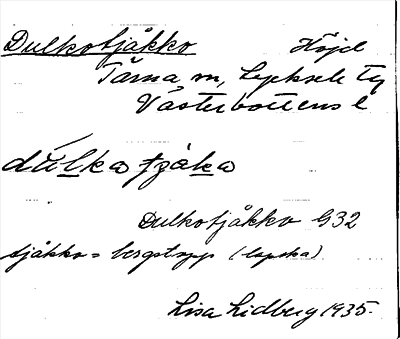 Dulkotjåkko Höjd
Tärna sn, Lycksele tg
Västerbottens l
dúlka tjåka
Dulkotjåkko G32
tjåkko = bergstopp (lapska)
Lisa Lidberg 1935.